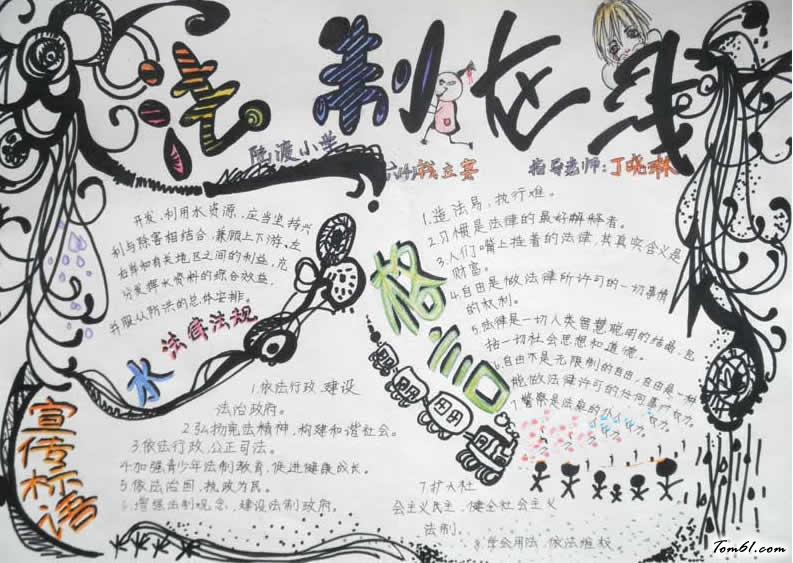 法制在线
陆渡小学
指导老师:丁晓琳
开发、利用水资源,应当坚持兴
利与除害相结合,兼顾上下游、左
右岸和有关地区之间的利益,充
分发挥水资料的综合效益,
并服从防洪的总体安排。
水法律法规
格言
1.造法易,执行难。
2.习惯是法律的最好解释者。
3.人们嘴上挂着的法律,其真实含义是
财富。
4.自由是做法律所许可的一切事情
的权利。
5.法律是一切人类智慧聪明的结晶,包
括一切社会思想和道德。
6.自由不是无限制的自由,自由是一种
能做法律许可的任何事的权力。
宣传标语
1.依法行政、建设
法治政府。
2.弘扬宪法精神,构建和谐社会。
3.依法行政,公正司法。
4.加强青少年法制教育,促进健康成长。
5.依法治国,执政为民。
6.增强法制观念,建设法制政府。
7.扩大社
会主义民主,健全社会主义
法制。
8.学会用法,依法维权
Tom61.com